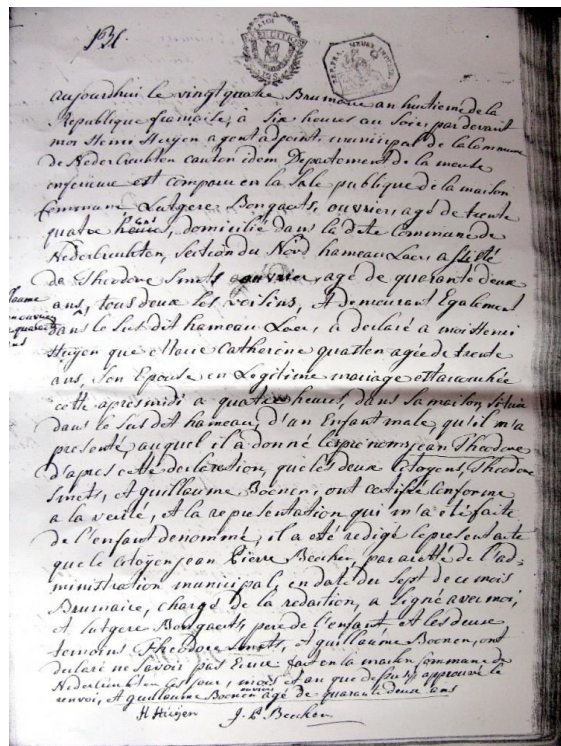 aujourdhui le vingt quatre Brumaire an huitieme de la
Republique francaise, à six heures au soir, par devant
moi Henri Huijen agent adjoint municipal de la Commune
de Neder Cruchten canton idem Departement de la meuse
inferieure est comparu en la Sale publique de la maison
Commune Lutgere Bongaerts, ouvrier, agé de trente
quatre ans, domicilié dans la dite Commune de
Nedercruchten, section du Nord hameau Laer, assisté
de Theodore Smets ouvrier, agé de quarante deux
ans, tous deux les voisins, et demeurant Egalement
dans le susdit hameau Laer, a declaré a moi Henri
Huijen que Marie Catherine quasten agée de trente
ans, son Epouse en Legitime mariage est accouchée
cette apresmidi a quatre heures, dans sa maison, située
dans le susdit hameau, d'un Enfant male, qu'il m'a
presenté, auquel il a donné les prenoms jean Theodore
d'apres cette declaration, que les deux Citoyens, Theodore
Smets, et guillaume Boenen, ont certifié Conforme
a la verité, et la representation qui m'a eté faite
de l'enfant denommé; il a eté redigé le present acte
que le Citoyen jean Pierre Beeken par arrêté de l'ad-
ministration municipal, en date du sept de ce mois
Brumaire, chargé de la redaction, a signé avec moi,
et lutgere Bongaerts, pere de l'enfant et les deux
temoins Theodore Smets, et guillaume Boenen, ont
declaré ne savoir pas Ecrire fait en la maison Commune de
Nedercruchten les jour, mois et an que dessus, approuvé le
renvoi, et guillaume Boenen ouvrier agé de quarante deux ans
H Huijen J. P Beeken